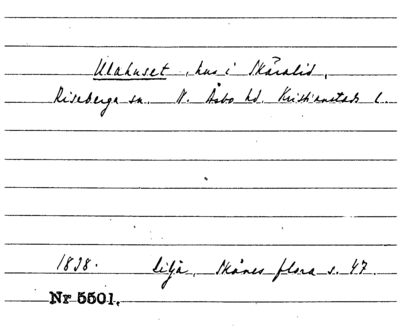 Ulahuset, hus i Skäralid,
Riseberga sn. N. Åsbo hd. Kristianstads l.
1838. Lilja, Skånes flora s. 47.
Nr 5501.